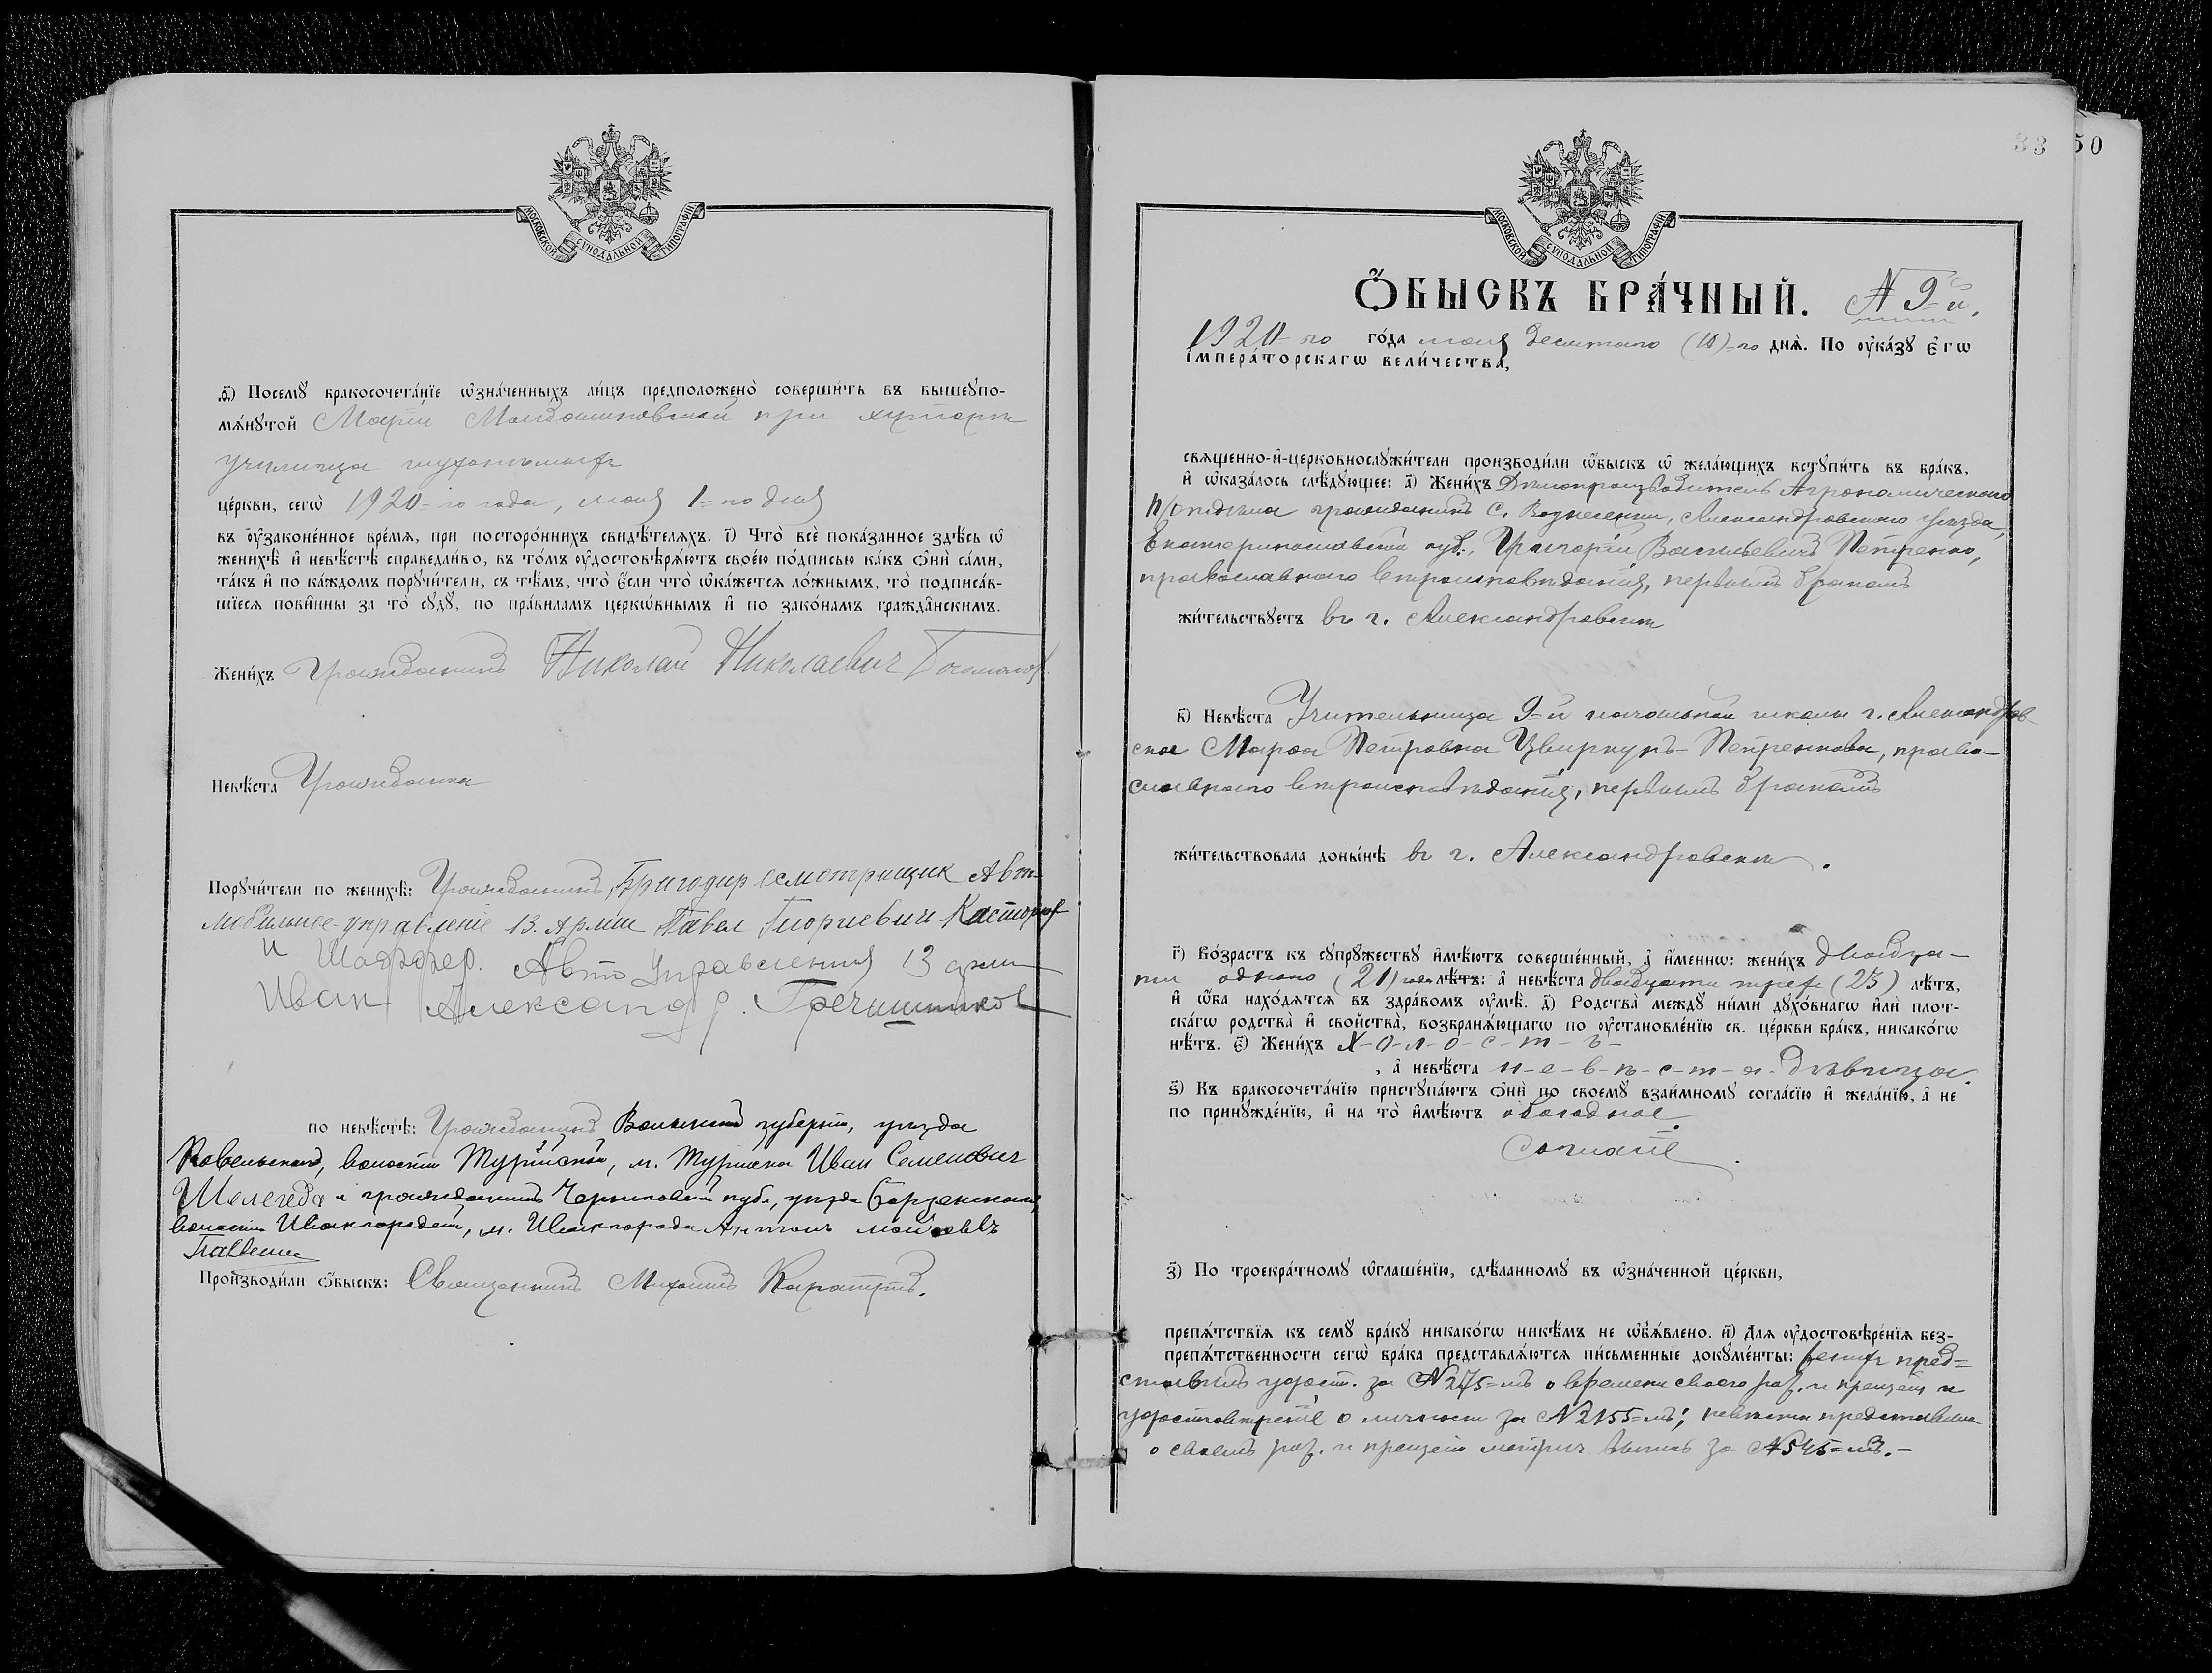 МОСКОВСКОЙ СѴНОДАЛЬНОЙ ТИПОГРАФІИ
ѳ҃) Посемꙋ̀ бракосочета́нїе ѡ҆зна́ченныхъ ли́цъ предположено̀ соверши́ть въ вышеꙋпо-
мѧ́нꙋтой Маріи Магдалиновской при хуторѣ
училища
це́ркви, сегѡ̀ 1920-го года, мая 1-го дня
въ ᲂу҆зако́ненное вре́мѧ, при посторо́ннихъ свидѣ́телѧхъ. і҃) Что̀ всѐ пока́занное здѣ́сь ѡ҆
женихѣ̀ и҆ невѣ́стѣ справедли́во, въ то́мъ ᲂу҆достовѣрѧ́ютъ свое́ю по́дписью ка́къ ѻ҆нѝ са́ми,
та́къ и҆ по ка́ждомъ порꙋчи́тели, съ тѣ́мъ, что̀ є҆́сли что̀ ѡ҆ка́жетсѧ ло́жнымъ, то̀ подписа́в-
шїесѧ пови́нны за то̀ сꙋдꙋ̀, по пра́виламъ церкѡ́внымъ и҆ по зако́намъ гражда́нскимъ.
Жени́хъ Гражданинъ Николай Николаевич
Невѣ́ста Гражданка
Порꙋчи́тели по женихѣ̀: Гражданинъ, Бригадир осмотрщик Авто-
мобильное управленіе 13. Арміи Павел Георгиевич Касторнов
и Шоффер. Авто Управления 13 арми
Иван Александр. Гречишников
по невѣ́стѣ: Гражданинъ Волынской губерніи, уѣзда
Ковельскаго, волости Турійской, м. Турійска Иван Семенович
Шелегеда и гражданинъ Черниговской губ., уѣзда Борзенскаго,
волости Ивангородской, м. Ивангорода Антонъ моисеевъ
Произвѡди́ли ѻ҆́быскъ: Священникъ Михаилъ
33 50
МОСКОВСКОЙ СѴНОДАЛЬНОЙ ТИПОГРАФІИ
Ѻ҆́БЫСКЪ БРА́ЧНЫЙ. № 9-й.
1920-го го́да мая десятаго (10)-го днѧ̀. По ᲂу҆ка́зꙋ Є҆гѡ̀
І҆мпера́торскагѡ вели́чества,
свѧще́нно-и҆-церковнослꙋжи́тели производи́ли ѻ҆́быскъ ѡ҆ жела́ющихъ встꙋпи́ть въ бра́къ,
и҆ ѡ҆каза́лось слѣ́дꙋющее: а҃) Жени́хъ Дѣлопроизводитель Агрономическаго
п/отдѣла гражданинъ с. Вознесенки, Александровскаго уѣзда,
Екатеринославской губ., Григорій Васильевичъ Петренко,
православнаго вѣроисповѣданія, первымъ бракомъ
жи́тельствꙋетъ въ г. Александровскѣ
в҃) Невѣ́ста Учительница 9-й начальной школы г. Александров-
ска Марфа Петровна Цвиркунъ-Петренкова, право-
славнаго вѣроисповѣданія, первымъ бракомъ
жи́тельствовала доны́нѣ въ г. Александровскѣ.
г҃) Во́зрастъ къ сꙋпрꙋ́жествꙋ и҆мѣ́ютъ соверше́нный, а҆ и҆́меннѡ: жени́хъ двадца-
ти одного (21) года лѣ́тъ: а҆ невѣ́ста двадцати трех (23) лѣ́тъ,
и҆ ѻ҆́ба нахо́дѧтсѧ въ здра́вомъ ᲂу҆мѣ̀. д҃) Родства̀ междꙋ ни́ми дꙋхо́внагѡ и҆лѝ плот-
ска́гѡ родства̀ и҆ сво́йства̀, возбранѧ́ющагѡ по ᲂу҆становле́нїю св. це́ркви бра́къ, никако́гѡ
нѣ́тъ. є҃) Жени́хъ х-о-л-о-с-т-ъ-
, а҆ невѣ́ста н-е-в-ѣ-с-т-а- дѣвица.
ѕ҃) Къ бракосочета́нїю пристꙋпа́ютъ ѻ҆нѝ по своемꙋ̀ взаи́мномꙋ согла́сїю и҆ жела́нїю, а҆ не
по принꙋжде́нїю, и҆ на то̀ и҆мѣ́ютъ обоюдное
Согласіе.
з҃) По троекра́тномꙋ ѡ҆глаше́нїю, сдѣ́ланномꙋ въ ѡ҆зна́ченной це́ркви,
препѧ́тствїѧ къ семꙋ̀ бра́кꙋ никако́гѡ никѣ́мъ не ѡ҆б̾ѧ́влено. и҃) Длѧ ᲂу҆достовѣре́нїѧ без-
препѧ́тственности сегѡ̀ бра́ка представлѧ́ютсѧ пи́сьменные докꙋме́нты: жених пред-
ставилъ удост. за № 275-мъ о времени своего рож. и крещенія и
удостовѣреніе о личности за № 2155-мъ; невѣста представила
о своемъ рож. и крещеніи метрич. выпись за № 545-мъ.-